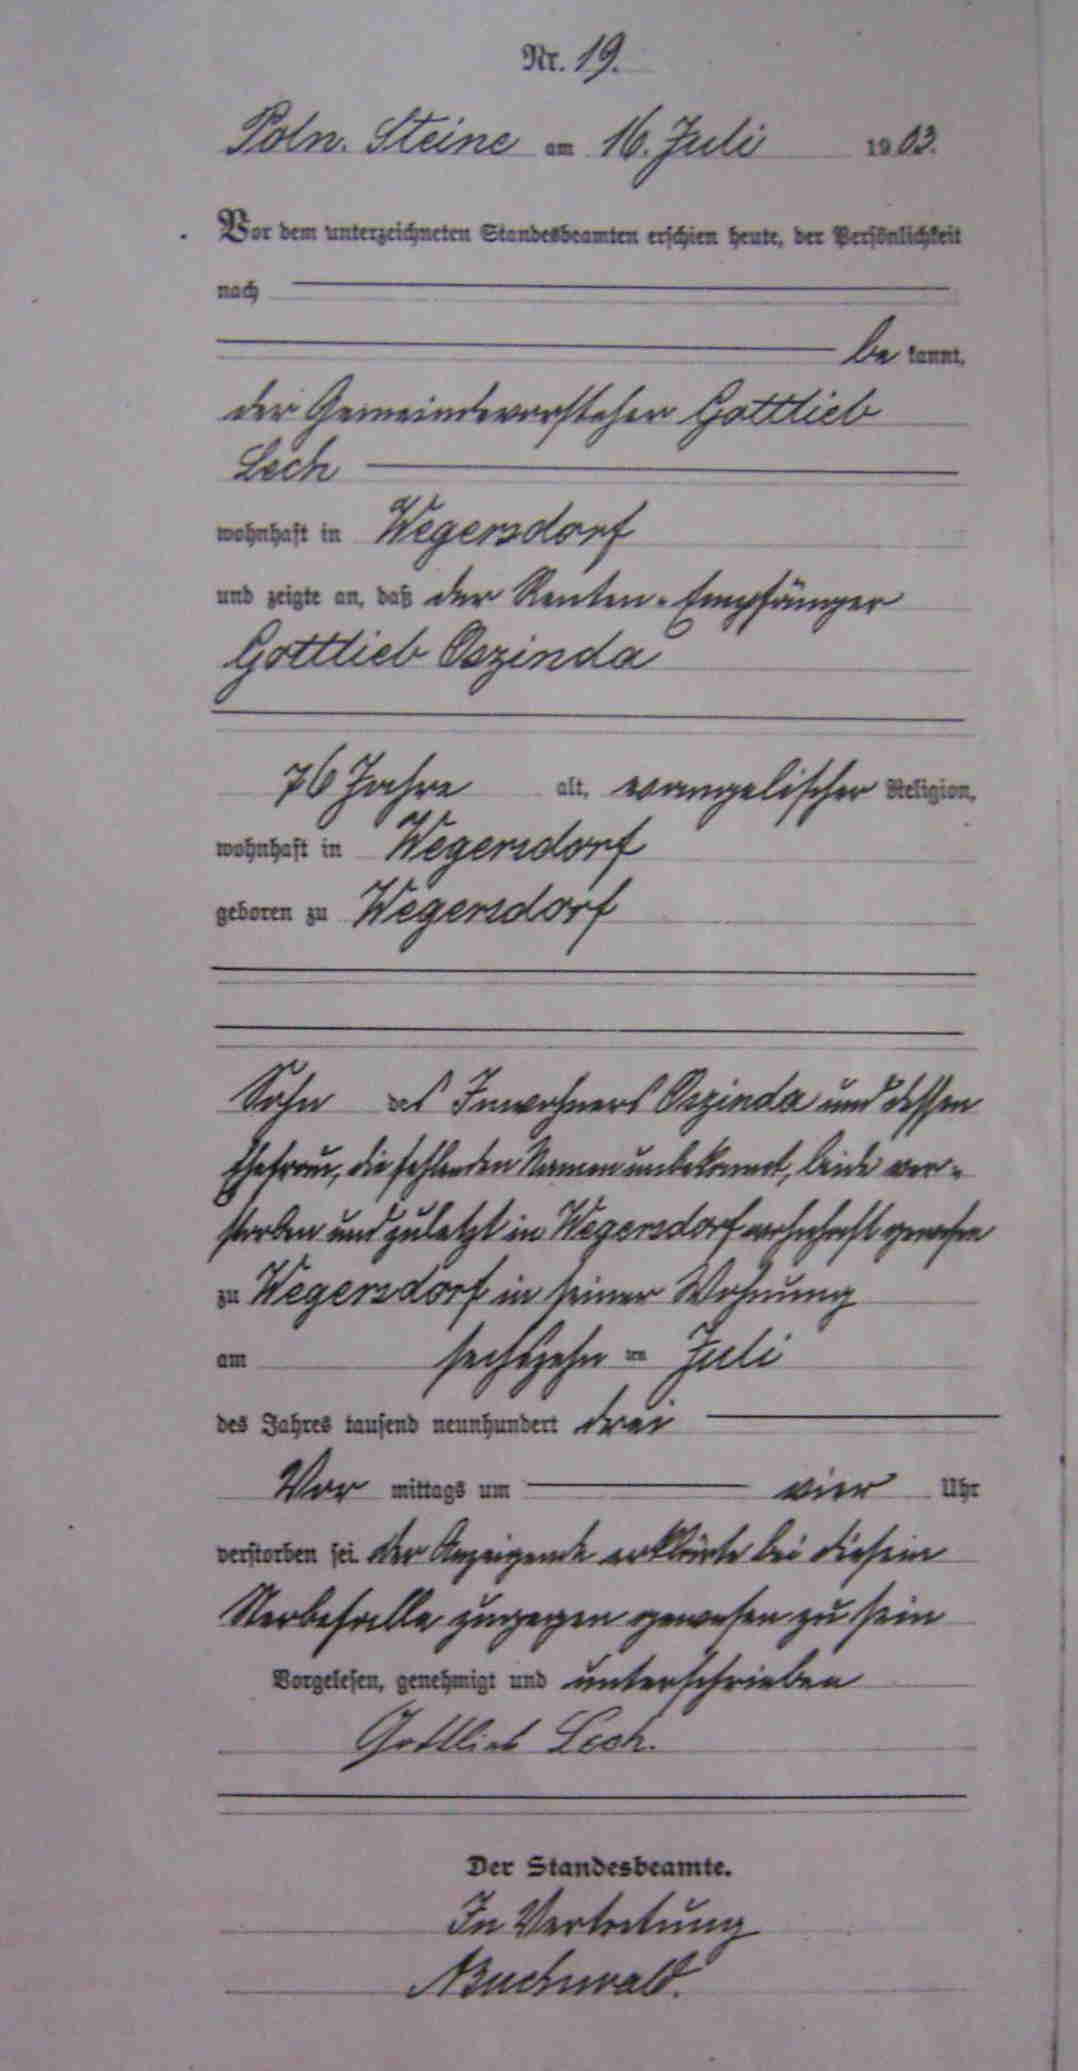 Nr. 19.
Poln. Steine am 16. Juli 1903.
Vor dem unterzeichneten Standesbeamten erschien heute, der Persönlichkeit
nach
be kannt,
der Gemeindevorsteher Gottlieb
Lech
wohnhaft in Wegersdorf
und zeigte an, daß der Renten-Empfänger
Gottlieb Oszinda
76 Jahre alt, evangelischer Religion,
wohnhaft in Wegersdorf
geboren zu Wegersdorf
Sohn des Inwohners Oszinda und dessen
Ehefrau, die fehlenden Namen unbekannt, beide ver-
storben und zuletzt in Wegersdorf wohnhaft gewesen
zu Wegersdorf in seiner Wohnung
am sechszehn ten Juli
des Jahres tausend neunhundert drei
Vor mittags um vier Uhr
verstorben sei. Der Anzeigende erklärte bei diesem
Sterbefalle zugegen gewesen zu sein
Vorgelesen, genehmigt und unterschrieben
Gottlieb Lech.
Der Standesbeamte.
In Vertretung
Buchwald.